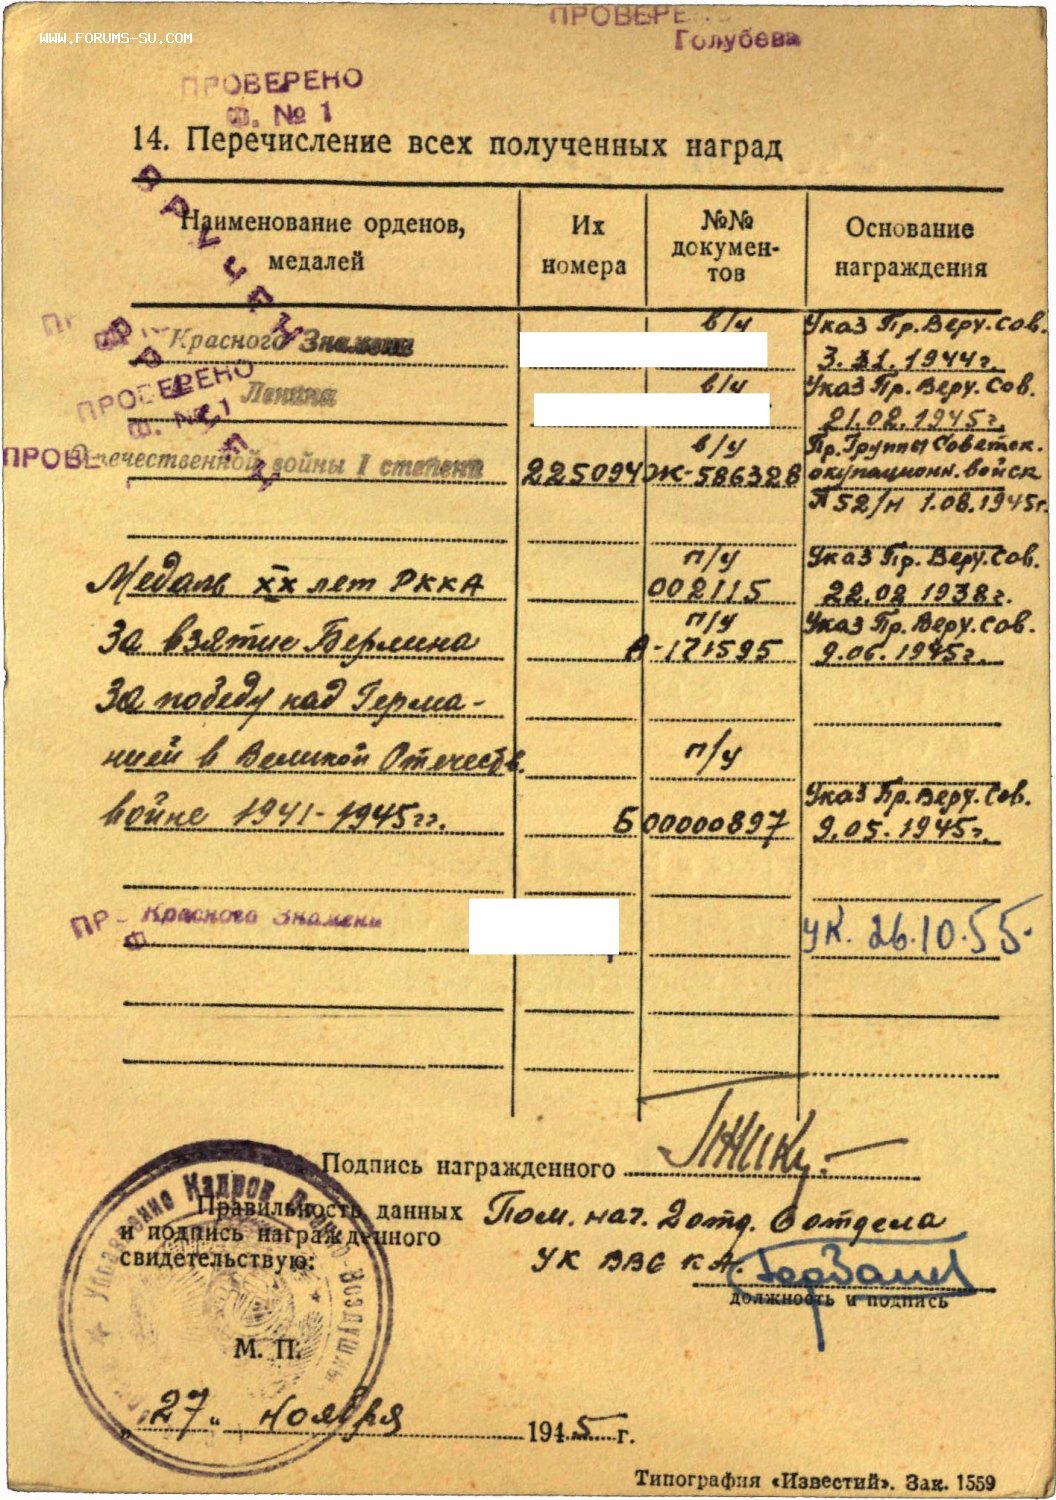 WWW.FORUMS-SU.COM
ПРОВЕРЕНО
Голубева
ПРОВЕРЕНО
Ф. № 1
14. Перечисление всех полученных наград
Наименование орденов, медалей
Их номера
№№ докумен-тов
Основание награждения
Красного Знамени
в/у
Указ Пр. Верх. Сов.
1944г.
ПРОВЕРЕНО
Ф. № 1
Ленина
в/у
Указ Пр. Верх. Сов.
21.02.1945г.
ПРОВЕ
Отечественной войны I степени
225094
в/у
Ж-586328
Пр. Группы Советск.
окупационн. войск
1.08.1945г.
Медаль XX лет РККА
п/у
002115
Указ Пр. Верх. Сов.
22.02 1938г.
За взятие Берлина
п/у
А-171595
Указ Пр. Верх. Сов.
9.06.1945г.
За победу над Герма-
нией в Великой Отечеств.
п/у
войне 1941-1945гг.
Б 00000897
Указ Пр. Верх. Сов.
9.05.1945г.
Красного Знамени
УК. 26.10.55.
Подпись награжденного
Правильность данных
и подпись награжденного
свидетельствую:
Пом. нач. 2 отд. 6 отдела
УК ВВС КА.
должность и подпись
Управление Кадров Военно-Воздушных
М. П.
„27" ноября 1945 г.
Типография «Известий». Зак. 1559